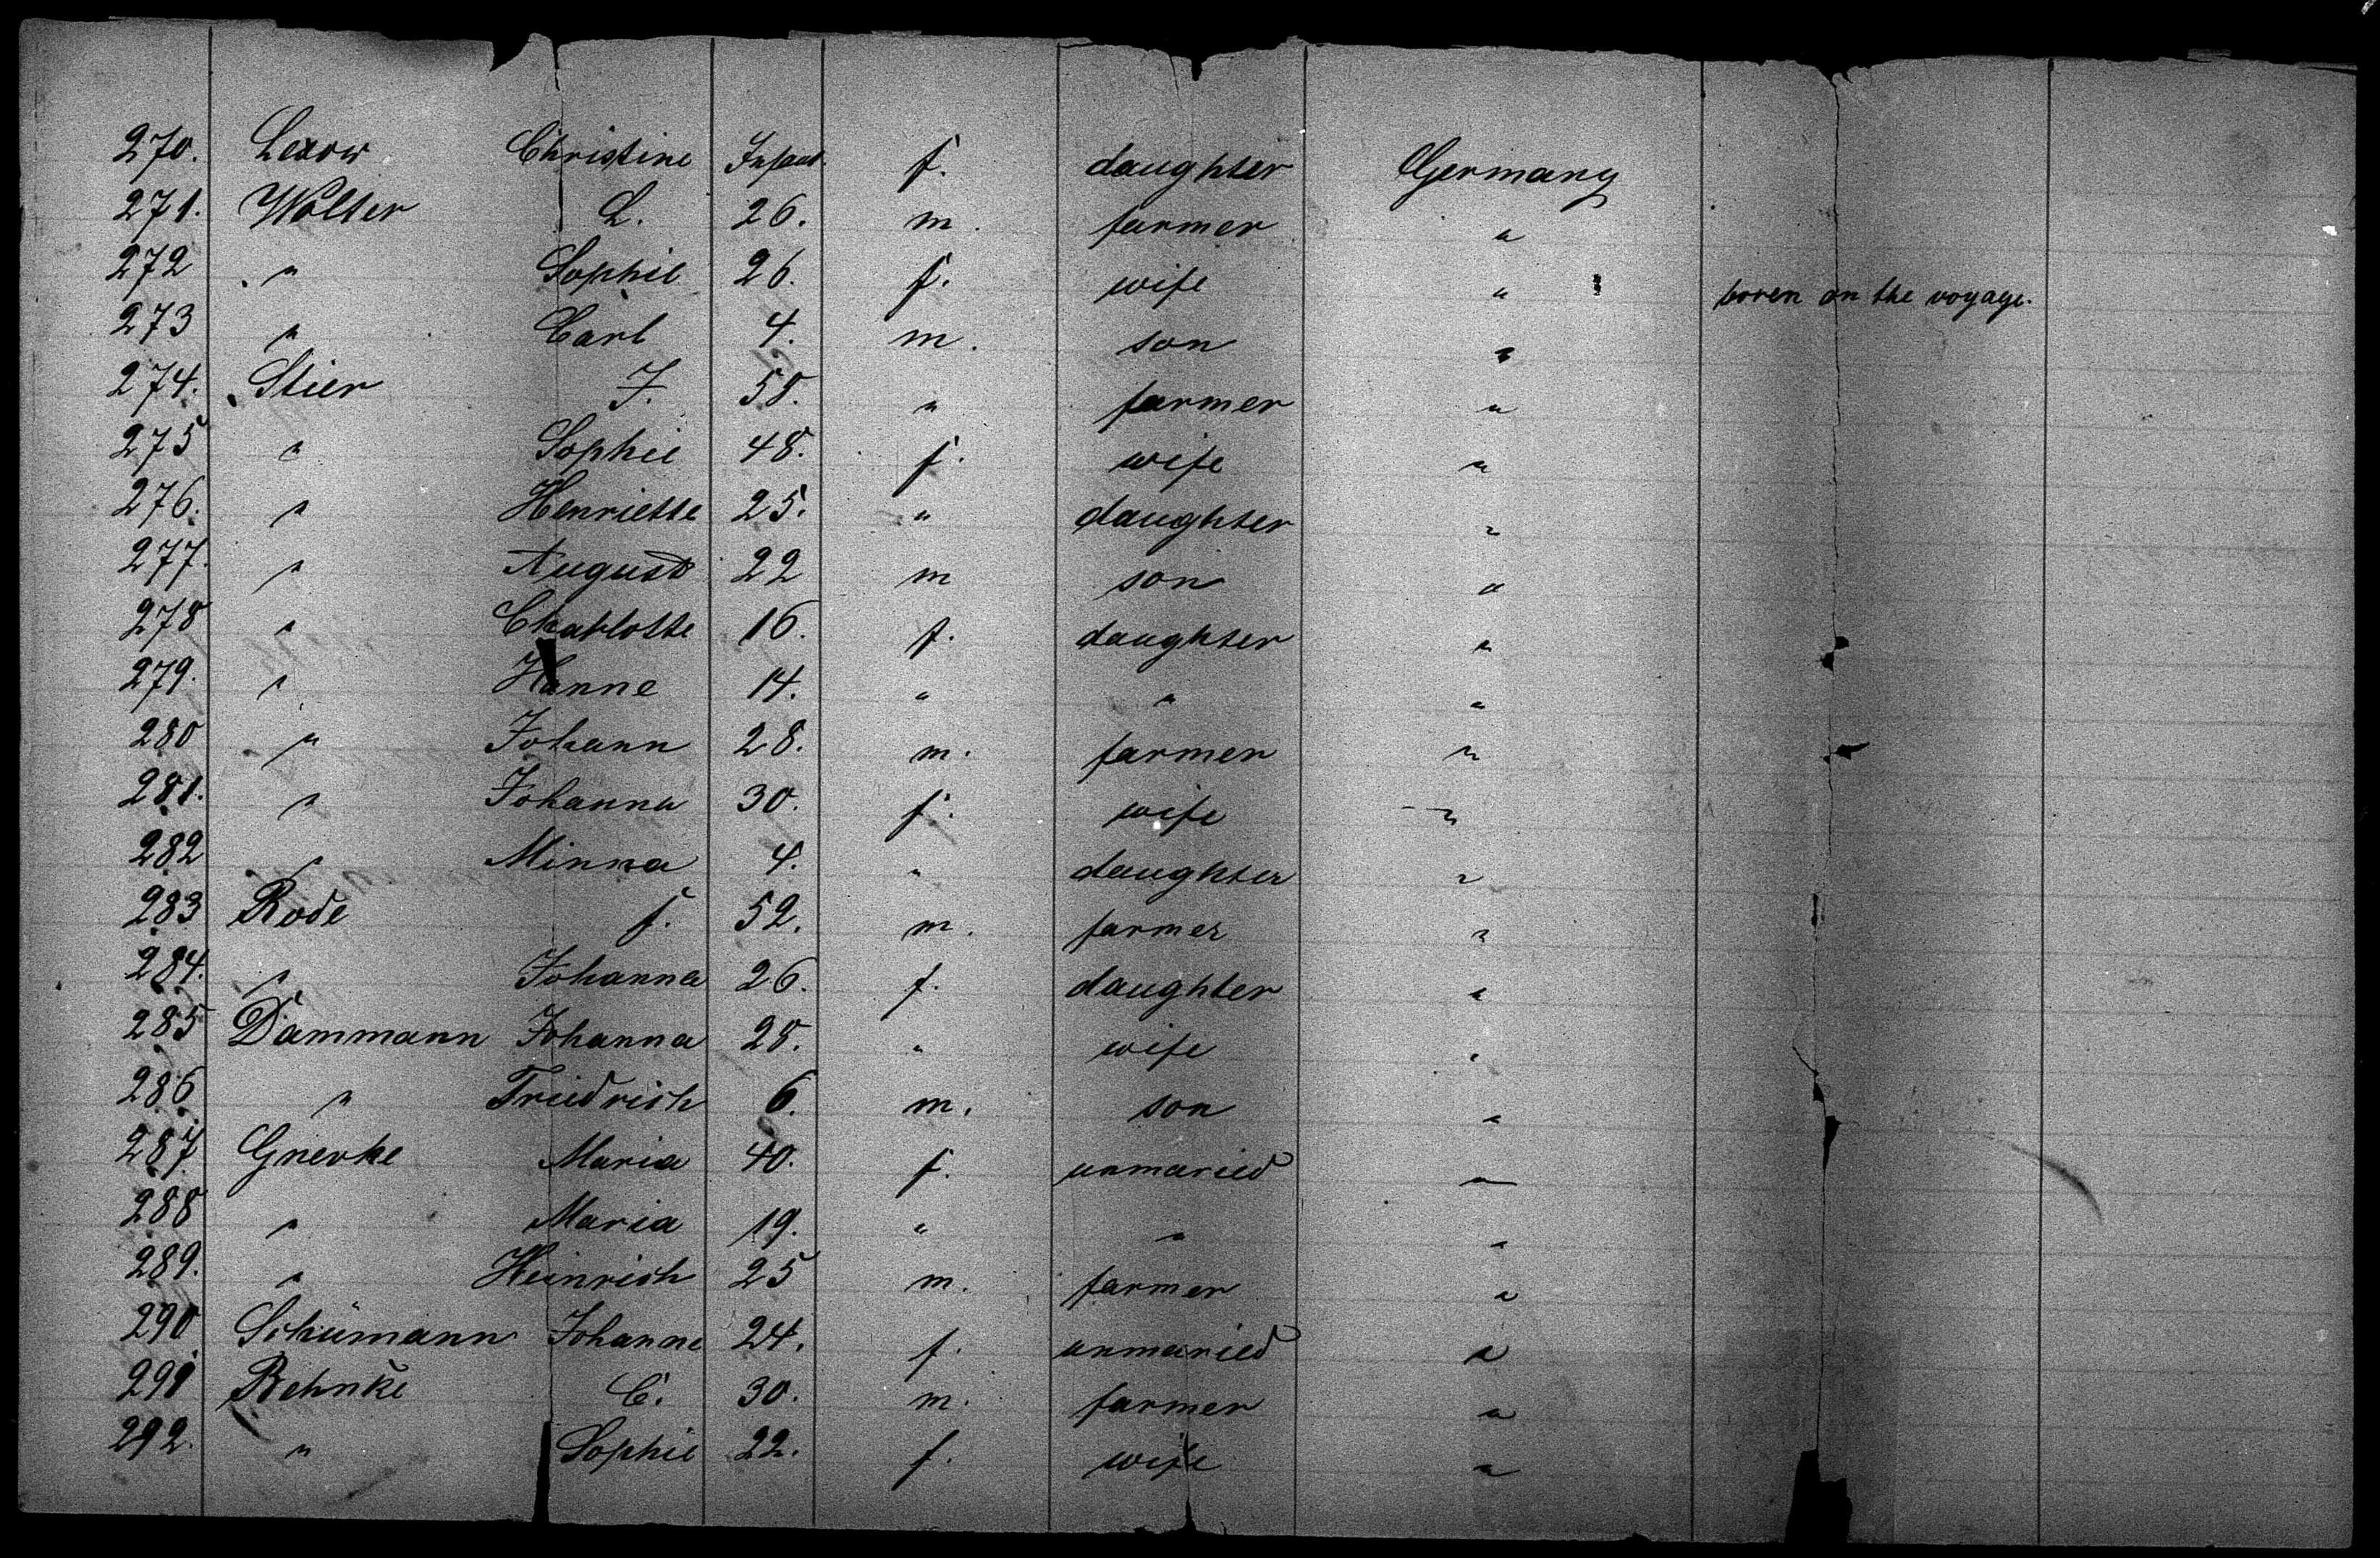 270. Lexow Christine Infant f. daughter Germany
271. Wolter L. 26. m. farmer "
272 " Sophie 26. f. wife " boren on the voyage.
273 " Carl 4. m. son "
274. Stier J. 58. " farmer "
275 " Sophie 48. f. wife "
276. " Henriette 25. " daughter "
277. " August 22 m son "
278 " Charlotte 16. f. daughter "
279. " Hanne 14. " " "
280 " Johann 28. m. farmer "
281. " Johanna 30. f. wife "
282 " Minna 4. " daughter "
283 Rode f. 52. m. farmer "
284. " Johanna 26. f. daughter "
285 Dammann Johanna 28. " wife "
286 " Friedrich 6. m. son "
287 Gnerke Maria 40. f. unmaried "
288 " Maria 19. " " "
289. " Heinrich 25 m. farmer "
290 Schümann Johanne 24. f. unmaried "
291 Behnke C. 30. m. farmer "
292. " Sophie 22. f. wife "